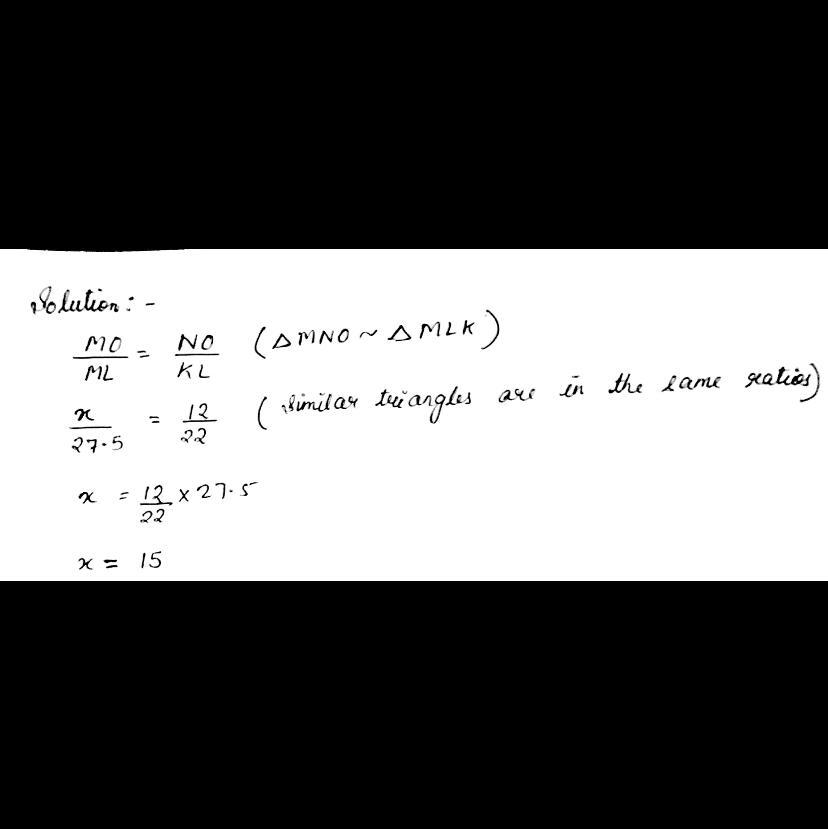 Solution: -
MO/ML = NO/KL (△MNO ~ △MLK)
x/27.5 = 12/22 (similar triangles are in the same ratios)
x = 12/22 × 27.5
x = 15